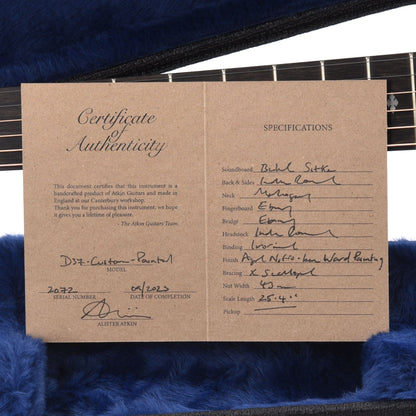 Certificate
of
Authenticity
This document certifies that this instrument is a
handcrafted product of Atkin Guitars and made in
England at our Canterbury workshop.
Thank you for purchasing this instrument; we hope
it gives you a lifetime of pleasure.
- The Atkin Guitars Team.
D37-Custom-Painted
MODEL
2072 09/2023
SERIAL NUMBER DATE OF COMPLETION
ALISTER ATKIN
SPECIFICATIONS
Soundboard Sitka
Back & Sides
Neck Mahogany
Fingerboard Ebony
Bridge Ebony
Headstock
Binding
Finish Aged Nitro - Ward Painting
Bracing X Scalloped
Nut Width 43mm
Scale Length 25.4"
Pickup